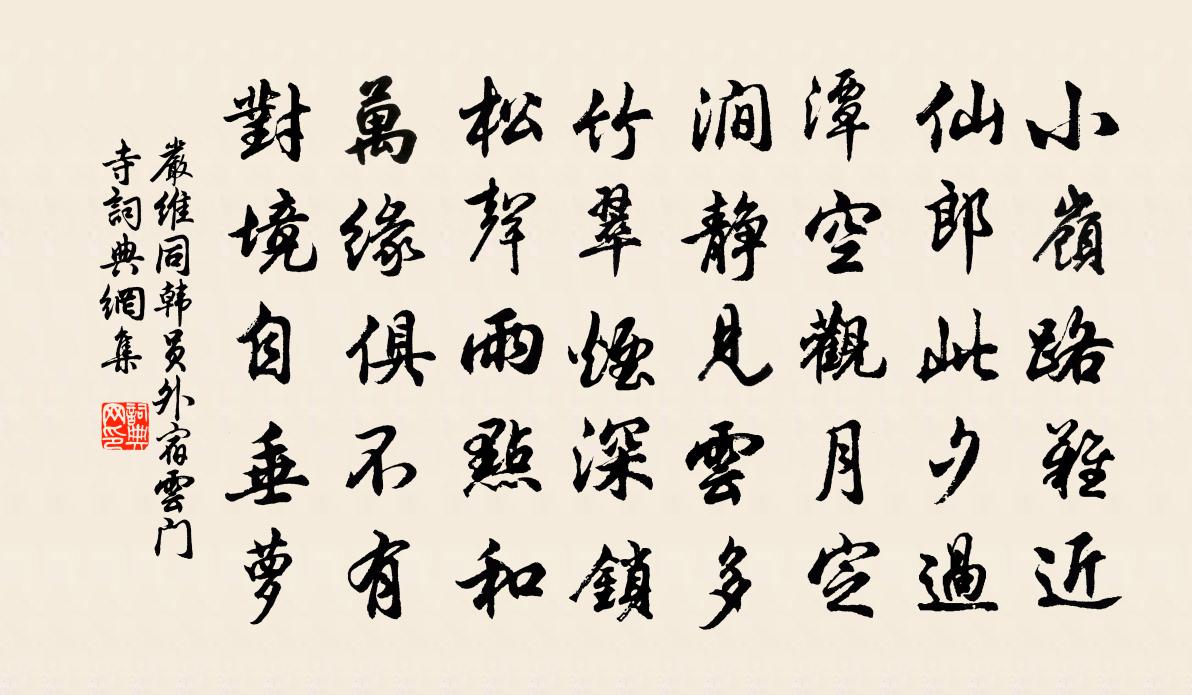 小嶺路難近
仙郎此夕過
潭空觀月定
澗静見雲多
竹翠煙深鎖
松聲雨點和
萬緣俱不有
對境自垂夢
嚴維同韩員外宿雲门
寺詞典網集
詞典
网印